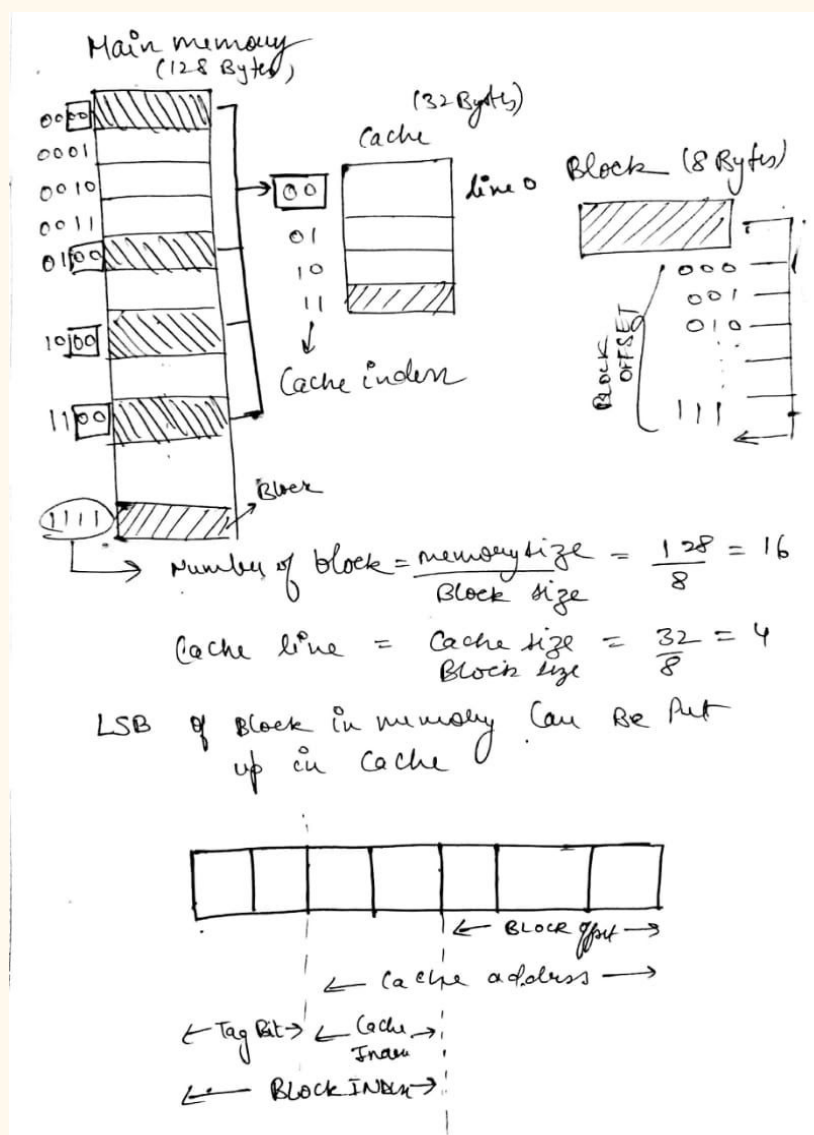 Main memory
(128 Bytes)
0000
0001
0010
0011
0100
1000
1100
1111
Block
(32 Bytes)
Cache
00
line 0
01
10
11
Cache index
Block (8 Bytes)
000
001
010
111
BLOCK
OFFSET
Number of block = memory size / Block size = 128 / 8 = 16
Cache line = Cache size / Block size = 32 / 8 = 4
LSB of Block in memory Can Be Put
up in Cache
BLOCK offset
Cache address
Tag Bit
Cache
Index
BLOCK INDEX